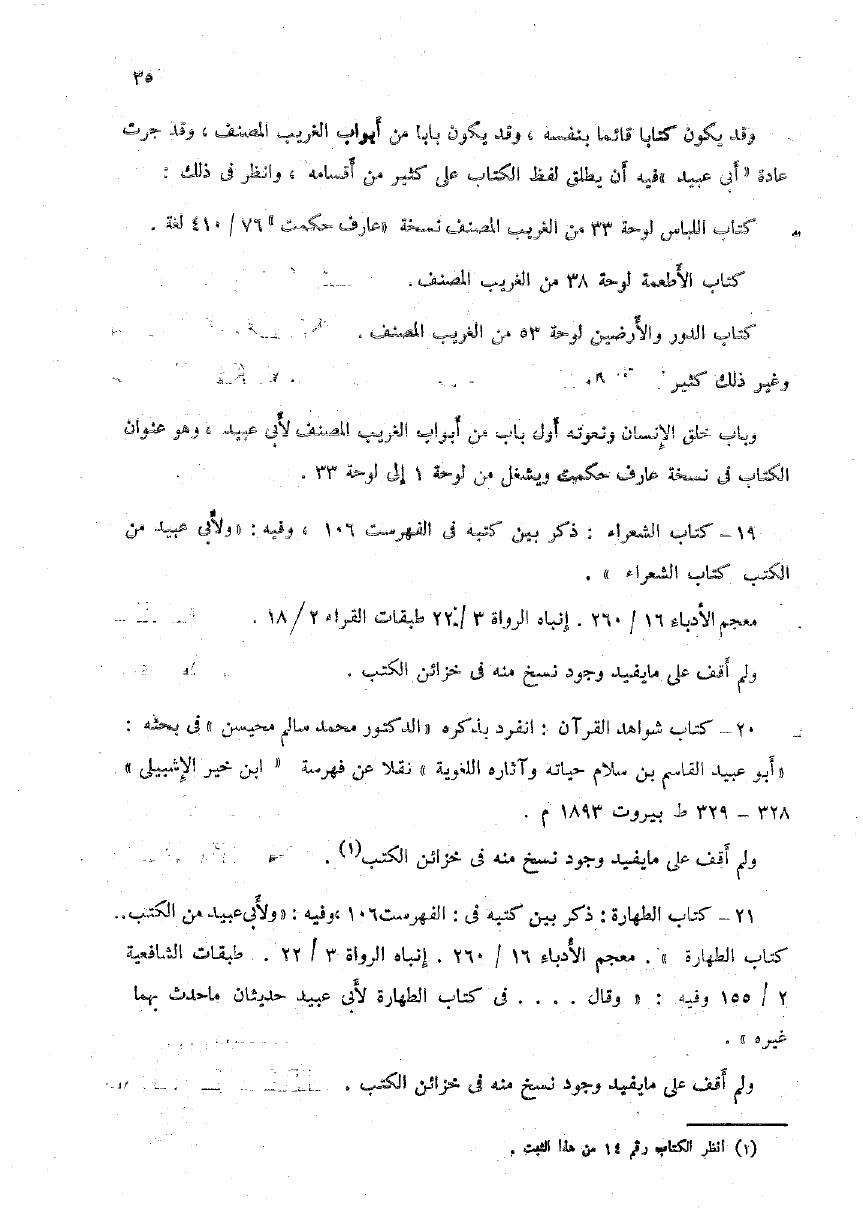 ٣٥
وقد يكون كتابا قائما بنفسه ، وقد يكون بابا من أبواب الغريب المصنف ، وقد جرت
عادة « أبى عبيد » فيه أن يطلق لفظ الكتاب على كثير من أقسامه ، وانظر فى ذلك :
كتاب اللباس لوحة ٣٣ من الغريب المصنف نسخة «عارف حكمت » ٧٦ / ٤١٠ لغة .
كتاب الأطعمة لوحة ٣٨ من الغريب المصنف .
كتاب الدور والأرضين لوحة ٥٣ من الغريب المصنف .
وغير ذلك كثير
وباب خلق الإنسان ونعوته أول باب من أبواب الغريب المصنف لأبى عبيد ، وهو عنوان
الكتاب فى نسخة عارف حكمت ويشغل من لوحة ١ إلى لوحة ٣٣ .
١٩ - كتاب الشعراء : ذكر بين كتبه فى الفهرست ١٠٦ ، وفيه : «ولأبى عبيد من
الكتب كتاب الشعراء » .
معجم الأدباء ١٦ / ٢٦٠ . إنباه الرواة ٣ / ٢٢ طبقات القراء ٢ / ١٨ .
ولم أقف على مايفيد وجود نسخ منه فى خزائن الكتب .
٢٠ - كتاب شواهد القرآن : انفرد بذكره «الدكتور محمد سالم محيسن » فى بحثه :
«أبو عبيد القاسم بن سلام حياته وآثاره اللغوية » نقلا عن فهرسة « ابن خير الإشبيلى »
٣٢٨ - ٣٢٩ ط بيروت ١٨٩٣ م .
ولم أقف على مايفيد وجود نسخ منه فى خزائن الكتب(١) .
٢١ - كتاب الطهارة : ذكر بين كتبه فى : الفهرست ١٠٦ ،وفيه : «ولأبى عبيد من الكتب..
كتاب الطهارة » . معجم الأدباء ١٦ / ٢٦٠ . إنباه الرواة ٣ / ٢٢ . طبقات الشافعية
٢ / ١٥٥ وفيه : « وقال . . . . فى كتاب الطهارة لأبى عبيد حديثان ماحدث بهما
غيره » .
ولم أقف على مايفيد وجود نسخ منه فى خزائن الكتب .
(١) انظر الكتاب رقم ١٤ من هذا الثبت .